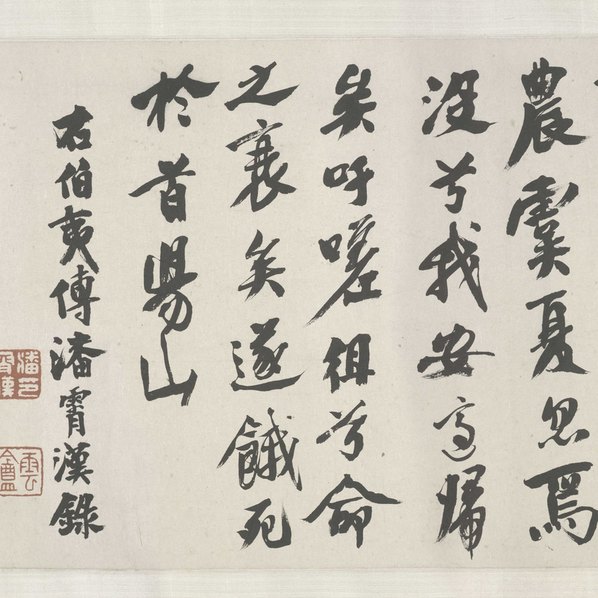 農虞夏忽焉
没兮我安適歸
矣吁嗟徂兮命
之衰矣遂餓死
於首陽山
右伯夷傳潘霄漢錄
潘印霄漢